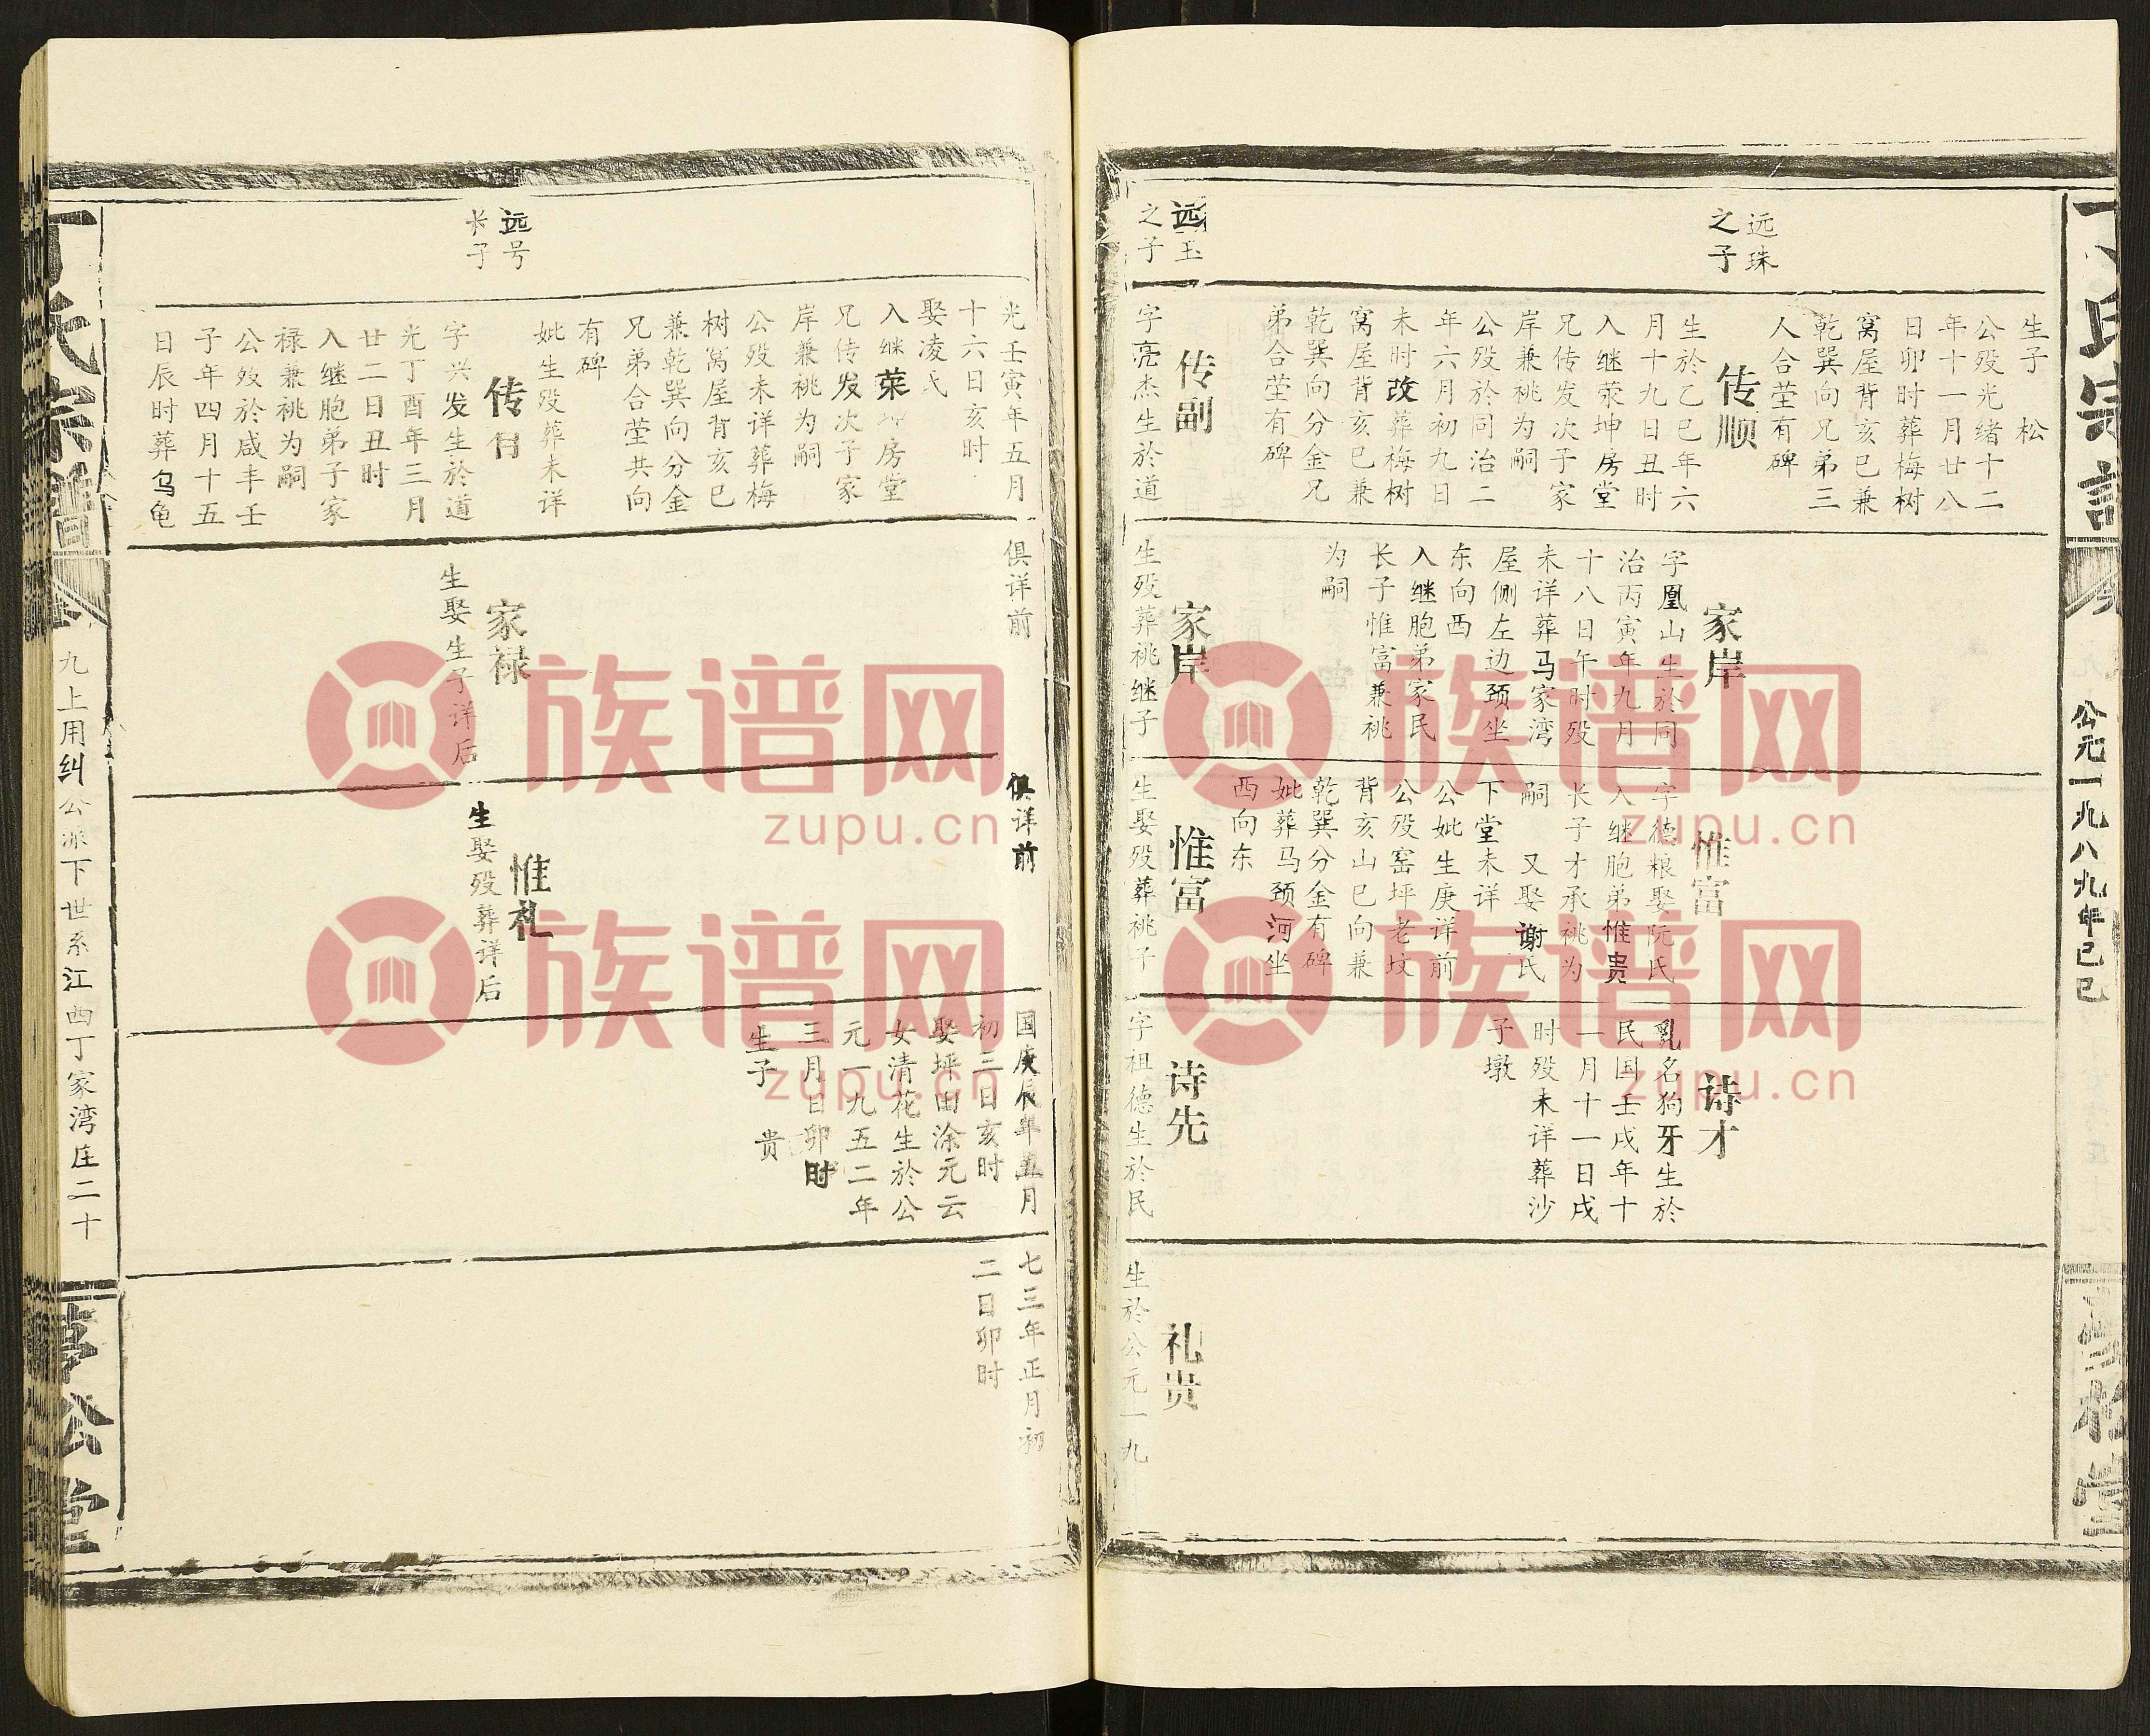 丁氏宗谱
公元一九八九年己巳
生子 松
公殁光绪十二
年十一月廿八
日卯时葬梅树
窝屋背亥巳兼
乾巽向兄弟三
人合茔有碑
远珠
之子
传顺
生於乙巳年六
月十九日丑时
入继荥坤房堂
兄传发次子家
岸兼祧为嗣
公殁於同治二
年六月初九日
未时改葬梅树
窝屋背亥巳兼
乾巽向分金兄
弟合茔有碑
远玉
之子
传副
字亮杰生於道
家岸
字凰山生於同
治丙寅年九月
十八日午时殁
未详葬马家湾
屋侧左边颈坐
东向西
入继胞弟家民
长子惟富兼祧
为嗣
家岸
生殁葬祧继子
惟富
字德粮娶阮氏
入继胞弟惟贵
长子才承祧为
嗣 又娶谢氏
下堂未详
公妣生庚详前
公殁窑坪老坟
背亥山巳向兼
乾巽分金有碑
妣葬马颈河坐
西向东
惟富
生娶殁葬祧子
诗才
乳名狗牙生於
民国壬戌年十
一月十一日戌
时殁未详葬沙
子墩
诗先
字祖德生於民
礼贵
生於公元一九
光壬寅年五月
十六日亥时
娶凌氏
入继荥坤房堂
兄传发次子家
岸兼祧为嗣
公殁未详葬梅
树窝屋背亥巳
兼乾巽向分金
兄弟合茔共向
有碑
妣生殁葬未详
远号
长子
字兴发生於道
光丁酉年三月
廿二日丑时
入继胞弟子家
禄兼祧为嗣
公殁於咸丰壬
子年四月十五
日辰时葬乌龟
俱详前
家禄
生娶生子详后
俱详前
惟礼
生娶殁葬详后
国庚辰年五月
初三日亥时
娶坪田涂元云
女清花生於公
元一九五二年
三月 日卯时
生子 贵
七三年正月初
二日卯时
丁氏宗谱
九上用纠公派下世系江西丁家湾庄二十